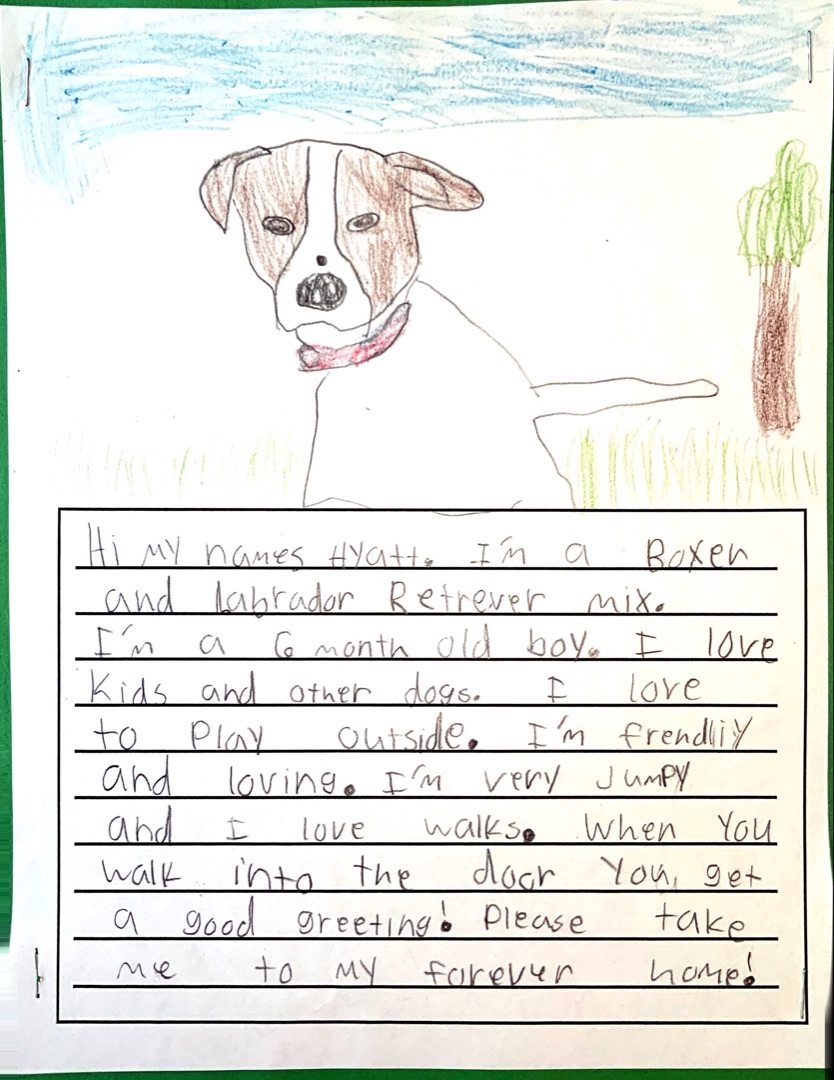 Hi my names Hyatt. I'm a Boxer
and Labrador Retrever mix.
I'm a 6 month old boy. I love
Kids and other dogs. I love
to Play outside. I'm frendliy
and loving. I'm very Jumpy
and I love walks. When You
walk into the door You, get
a good greeting! Please take
me to my forever home!